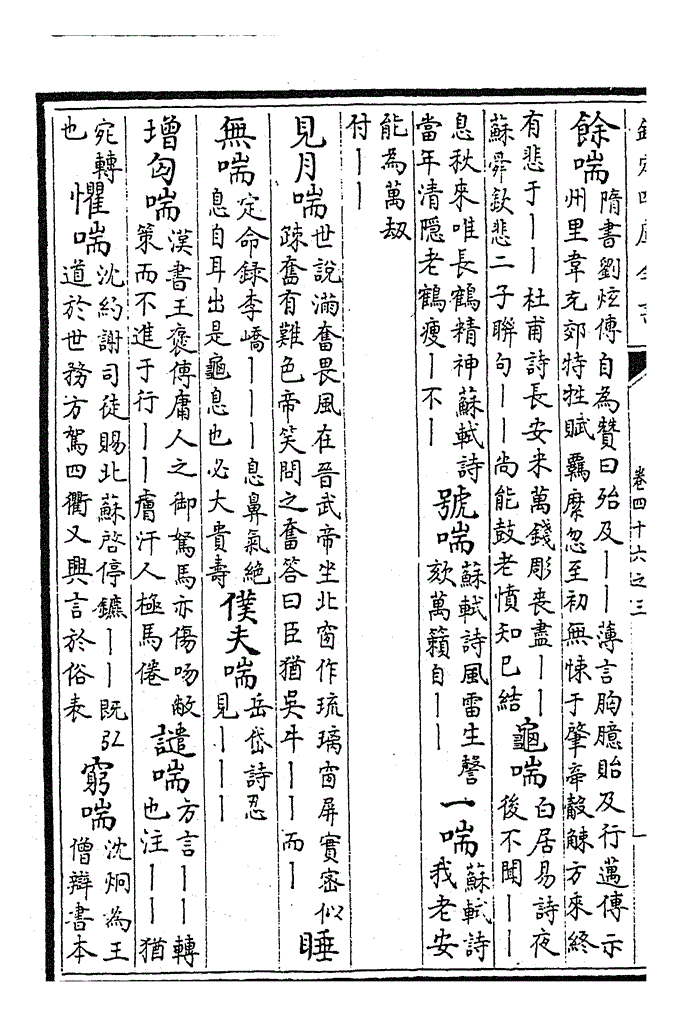 欽定四庫全書
卷四十六之三
餘喘
隋書劉炫傳自為贊曰殆及丨丨薄言胸臆貽及行邁傳示
州里韋充郊特牲賦羈縻忽至初無悚于肇帝觳觫方來終
有悲于丨丨杜甫詩長安米萬錢彫喪盡丨丨
蘇舜欽悲二子聯句丨丨尚能鼓老憤知已結
龜喘
白居易詩夜
後不聞丨丨
息秋來唯長鶴精神蘇軾詩
當年清隱老鶴瘦丨不丨
號喘
蘇軾詩風雷生謦
欬萬籟自丨丨
一喘
蘇軾詩
我老安
能為萬劫
付丨丨
見月喘
世說滿奮畏風在晉武帝坐北窗作琉璃窗屏實密似
疎奮有難色帝笑問之奮答曰臣猶吳牛丨丨而丨
睡
無喘
定命録李嶠丨丨丨息鼻氣絶
息自耳出是龜息也必大貴壽
僕夫喘
岳岱詩忍
見丨丨丨
增匈喘
漢書王褒傳庸人之御駑馬亦傷吻敝
策而不進于行丨丨膚汗人極馬倦
譴喘
方言丨丨轉
也注丨丨猶
宛轉
也
懼喘
沈約謝司徒賜北蘇啓停鑣丨丨既弘
道於世務方駕四衢又興言於俗表
窮喘
沈炯為王
僧辯書本